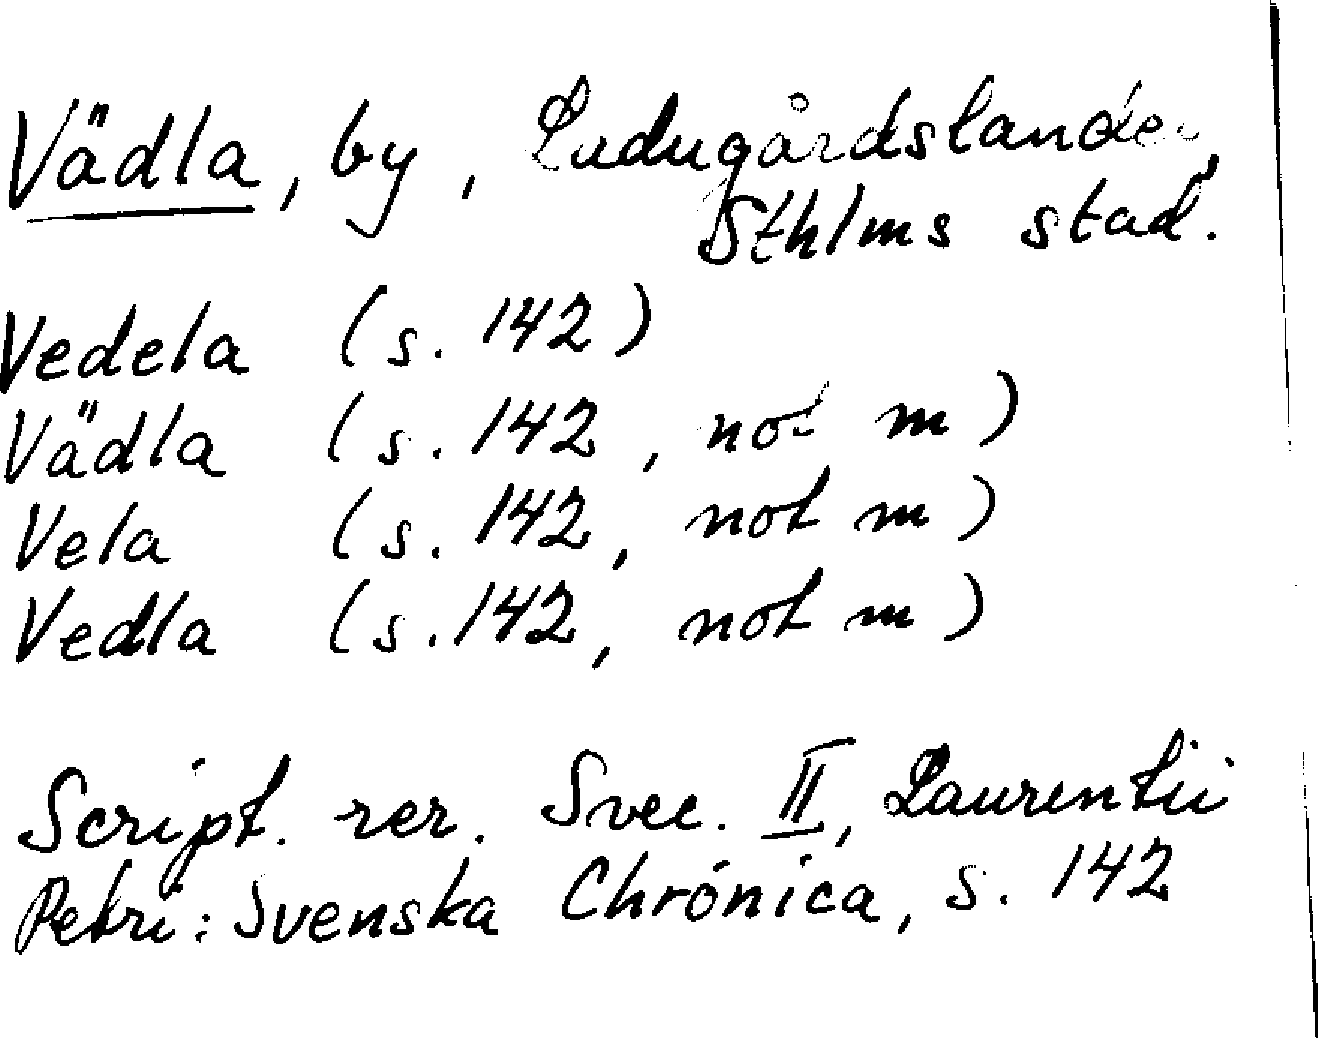 Vädla, by, Ladugårdslandet,
Sthlms stad.
Vedela (s. 142)
Vädla (s. 142, not m)
Vela (s. 142, not m)
Vedla (s. 142, not m)
Script. rer. Svec. II, Laurentii
Petri: Svenska Chrónica, s. 142